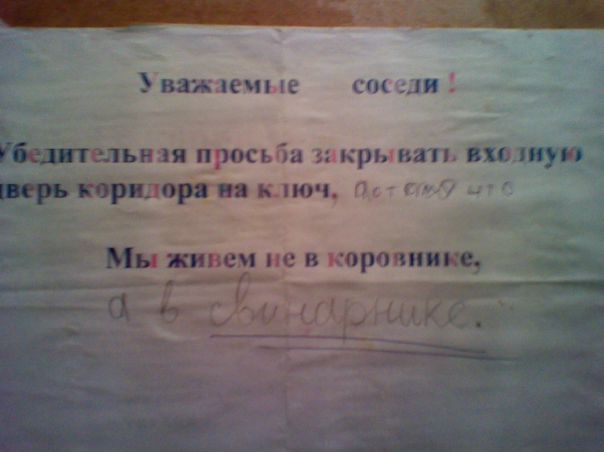 Уважаемые соседи !
Убедительная просьба закрывать входную
дверь коридора на ключ, потому что
Мы живем не в коровнике,
а в свинарнике.